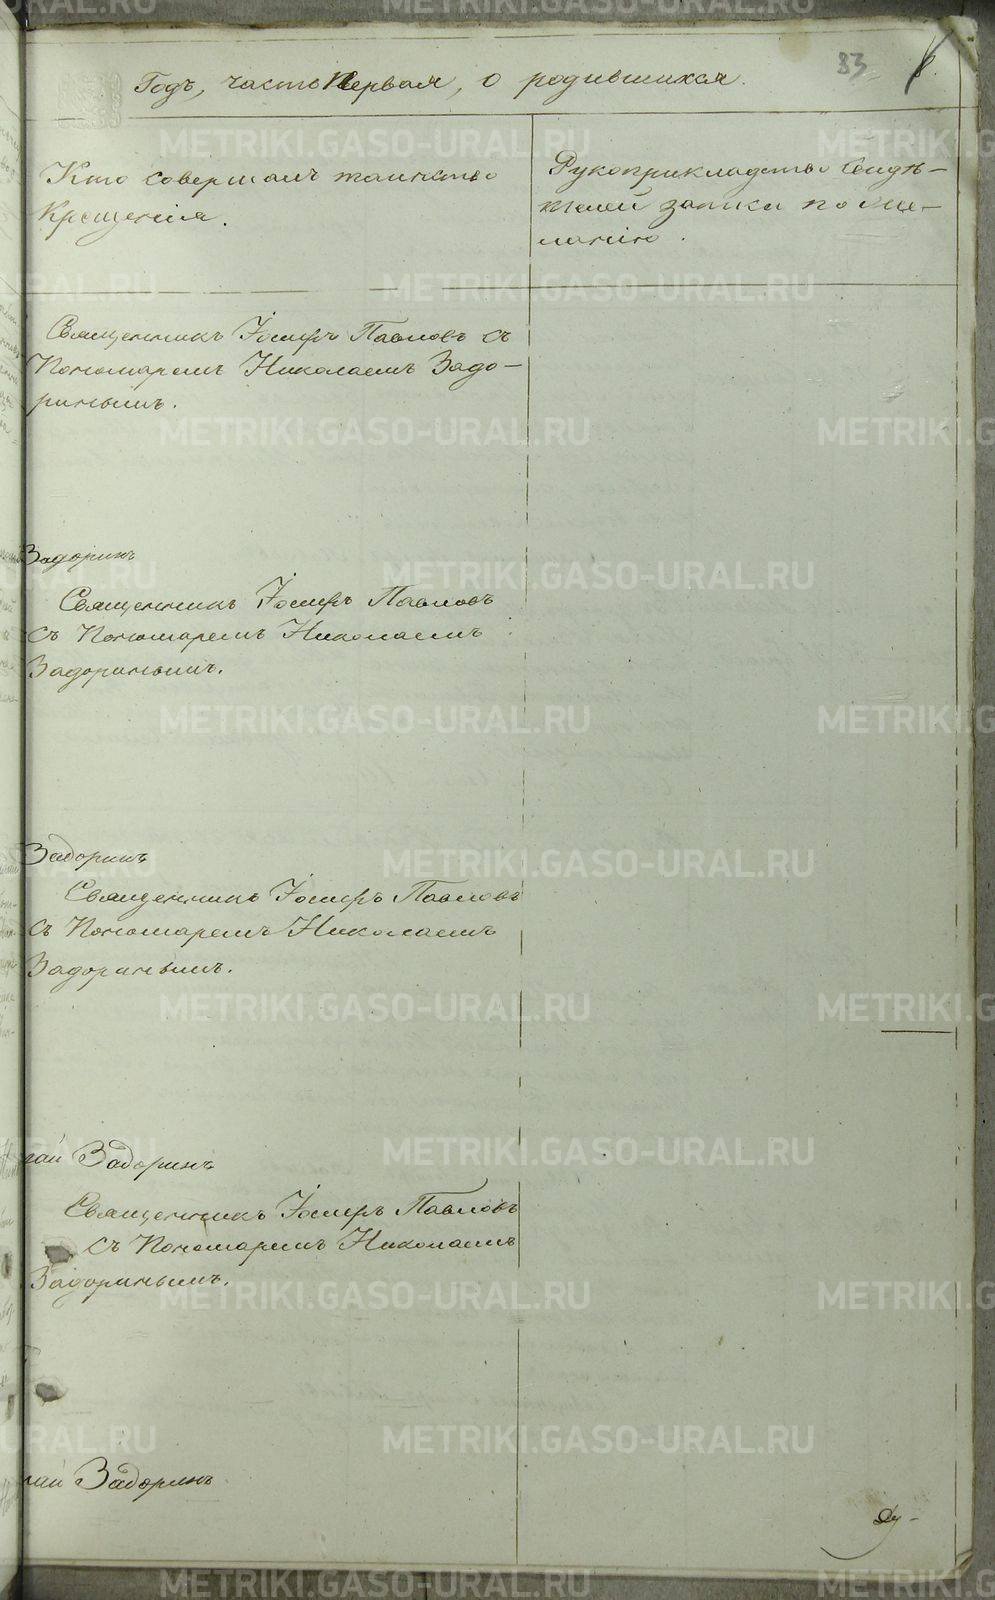 83
Годъ, часть Первая, о родившихся.
Кто совершалъ таинство
Крещенія.
Рукоприкладство свидѣ-
телей записи по же-
ланію.
Священникъ Іосифъ Павловъ съ
Пономаремъ Николаемъ Задо-
ринымъ.
Задоринъ
Священникъ Іосифъ Павловъ
съ Пономаремъ Николаемъ
Задоринымъ.
Задоринъ
Священникъ Іосифъ Павловъ
съ Пономаремъ Николаемъ
Задоринымъ.
лай Задоринъ
Священникъ Іосифъ Павловъ
съ Пономаремъ Николаемъ
Задоринымъ.
лай Задоринъ
METRIKI.GASO-URAL.RU